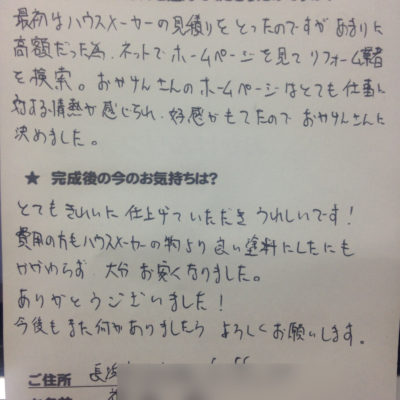 最初はハウスメーカーの見積りをとったのですがあまりに
高額だった為、ネットでホームページを見てリフォーム業者
を検索。おやけんさんのホームページはとても仕事に
対する情熱が感じられ、好感がもてたのでおやけんさんに
決めました。
★ 完成後の今のお気持ちは?
とてもきれいに仕上げていただきうれしいです!
費用の方もハウスメーカーの物より良い塗料にしたにも
かかわらず、大分お安くなりました。
ありがとうございました!
今後もまた何かありましたらよろしくお願いします。
ご住所 長浜